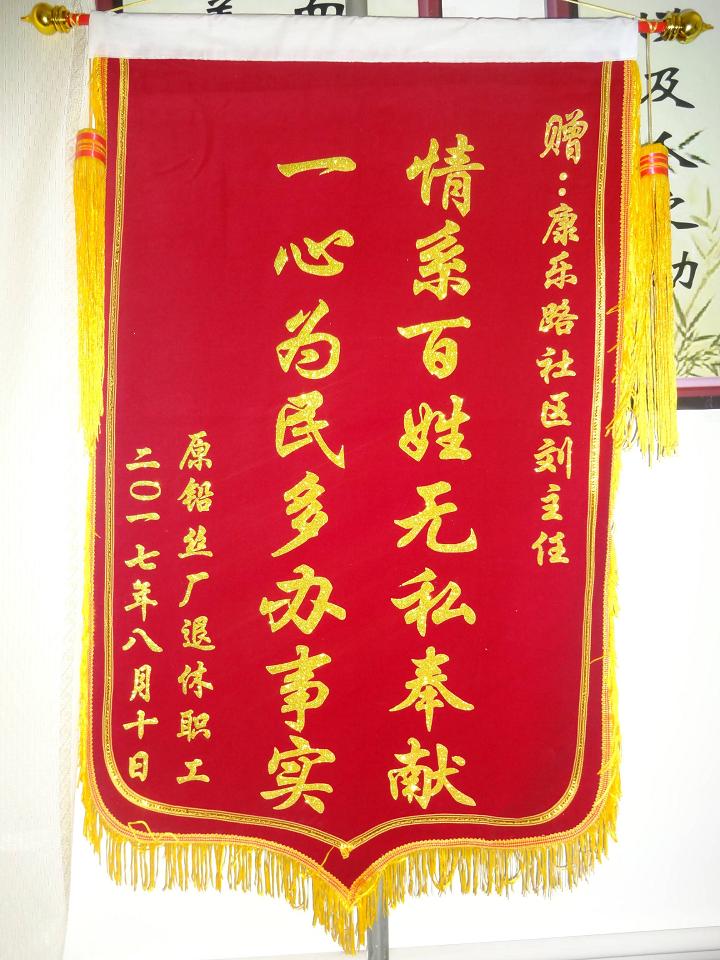 赠：康乐路社区刘主任
情系百姓无私奉献
一心为民多办事实
原铅丝厂退休职工
二〇一七年八月十日